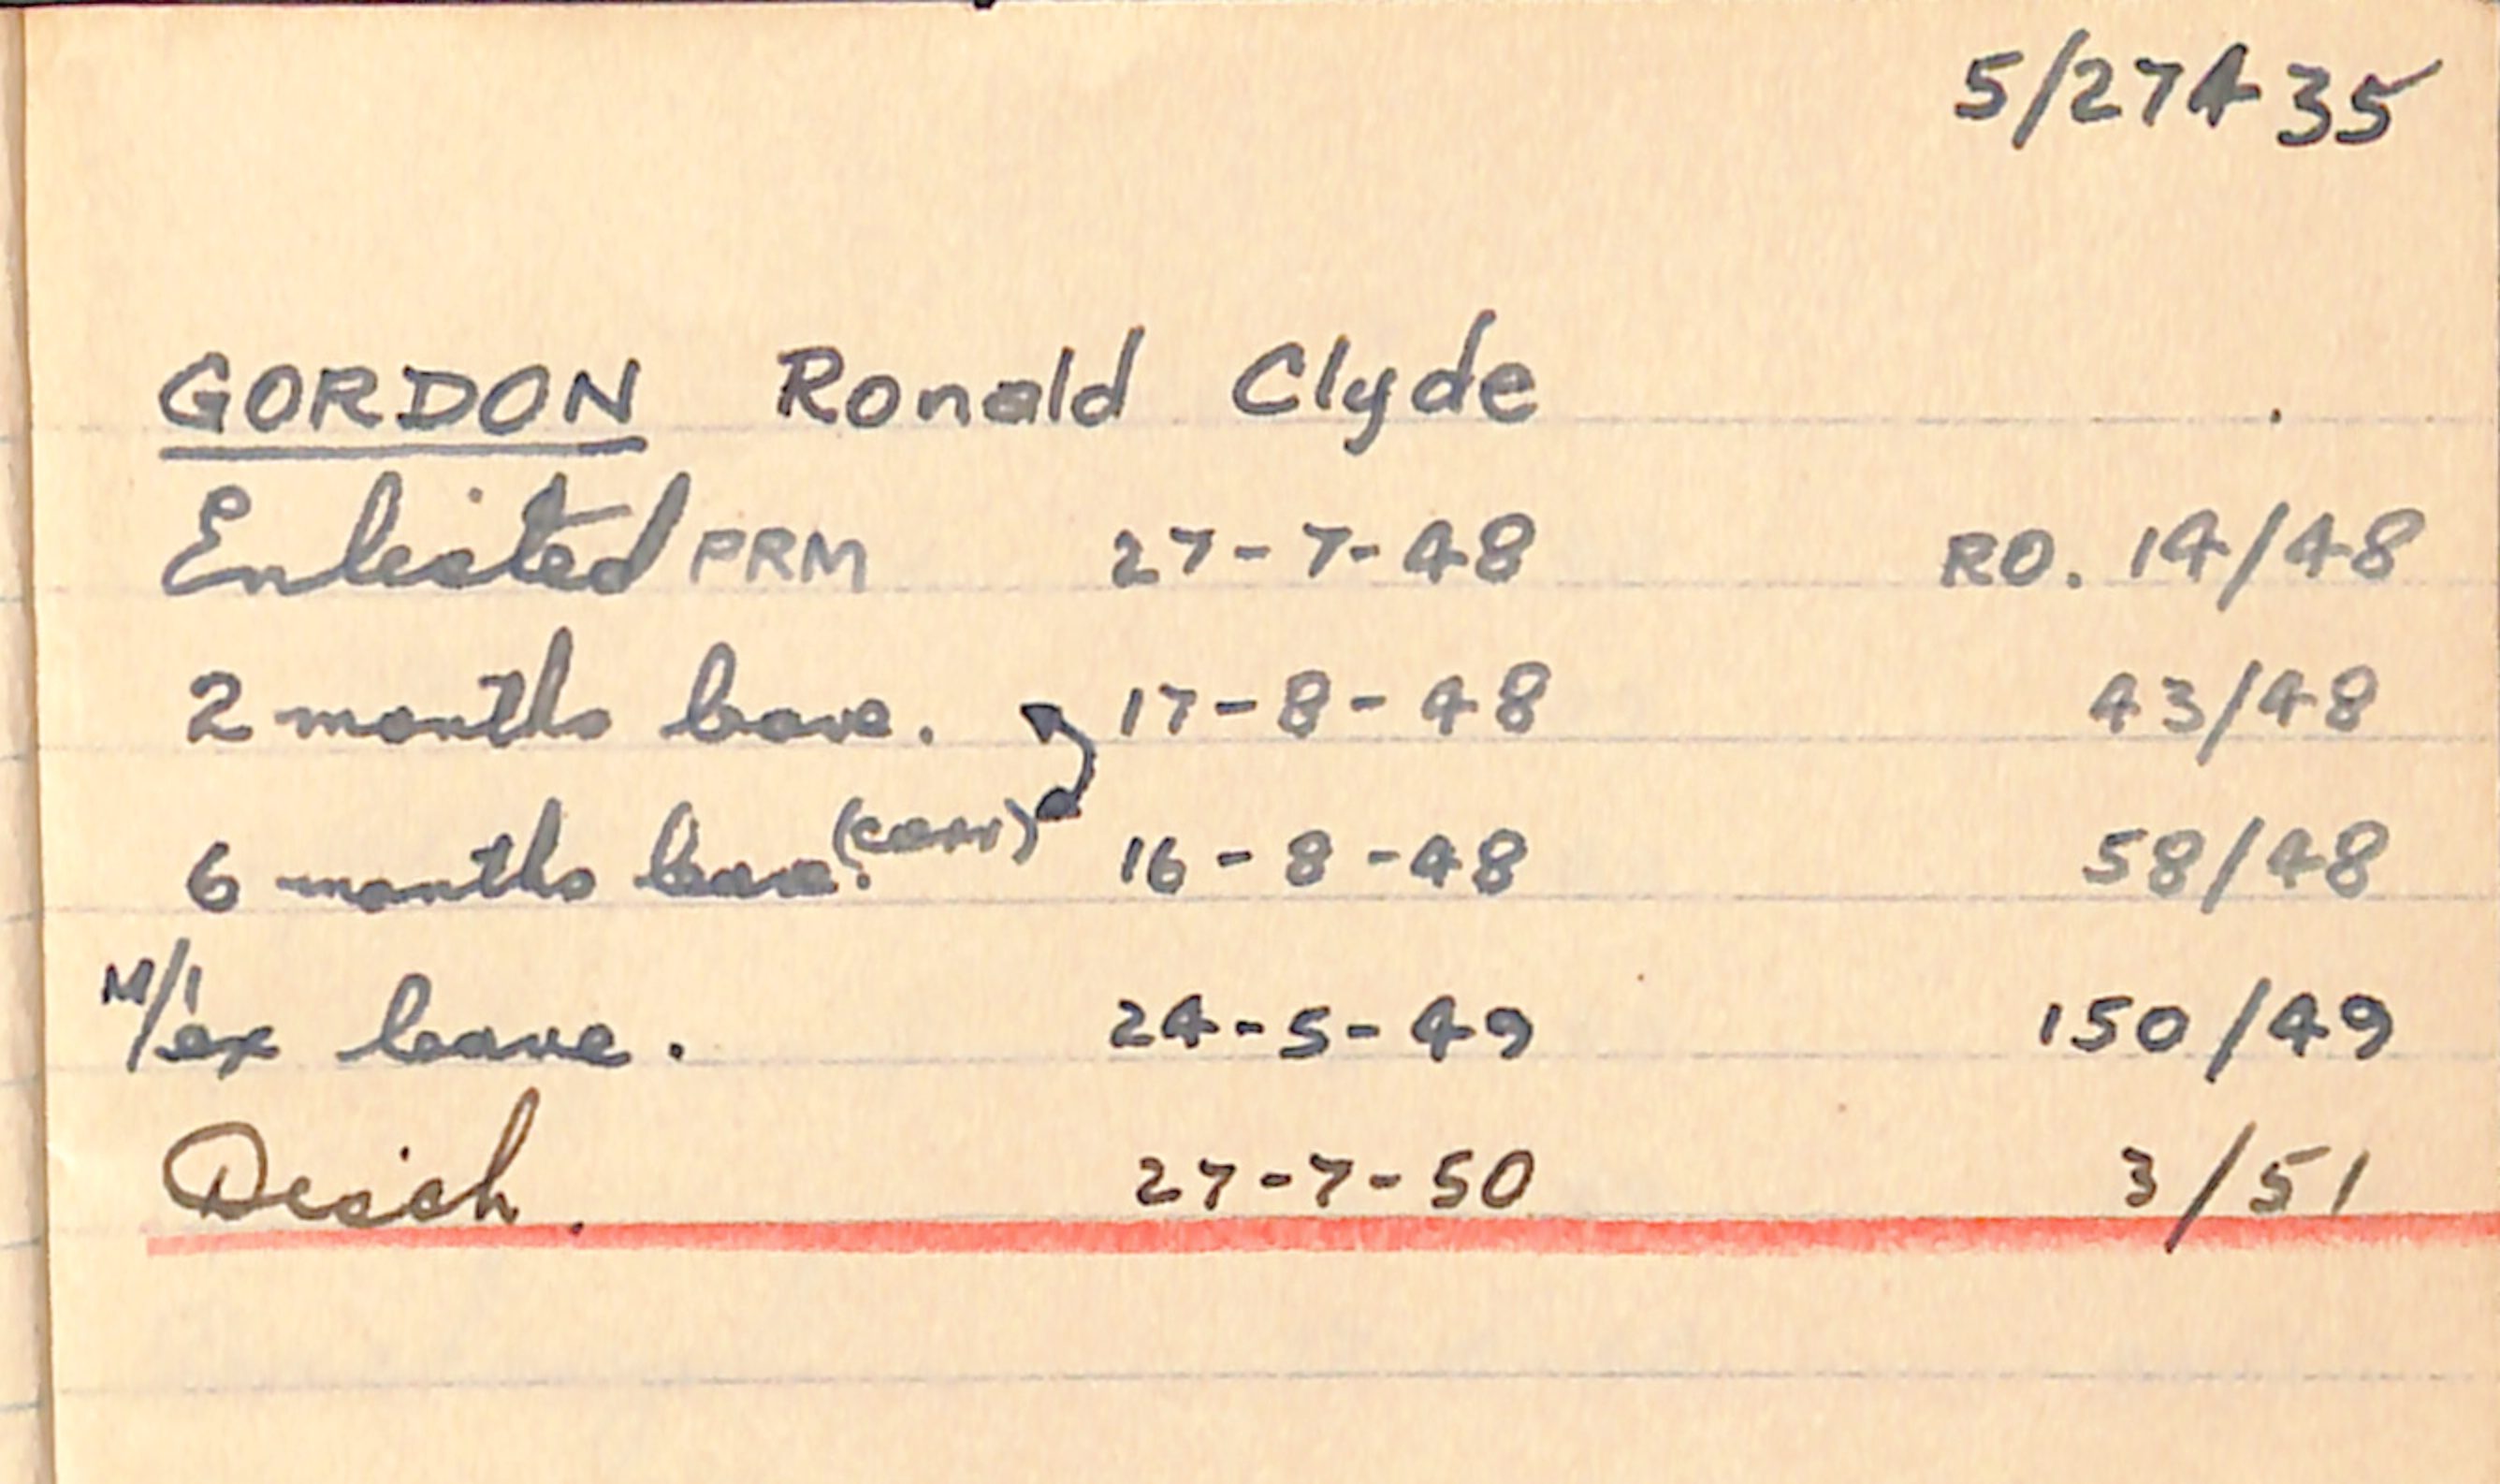 5/27435
GORDON Ronald Clyde
Enlisted PRM 27-7-48 RO. 14/48
2 months leave. 17-8-48 43/48
6 months leave. (corr) 16-8-48 58/48
M/I ex leave. 24-5-49 150/49
Disch. 27-7-50 3/51